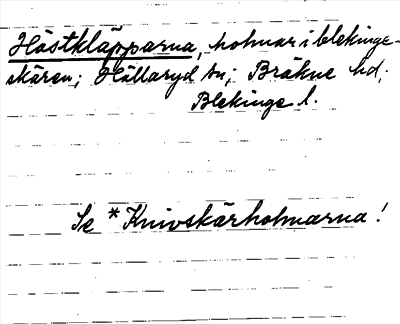 Höstkläpparna, holmar i blekinge-
skären; Hällaryd sn; Bräkne hd,
Blekinge l.
Se *Knivskärholmarna!